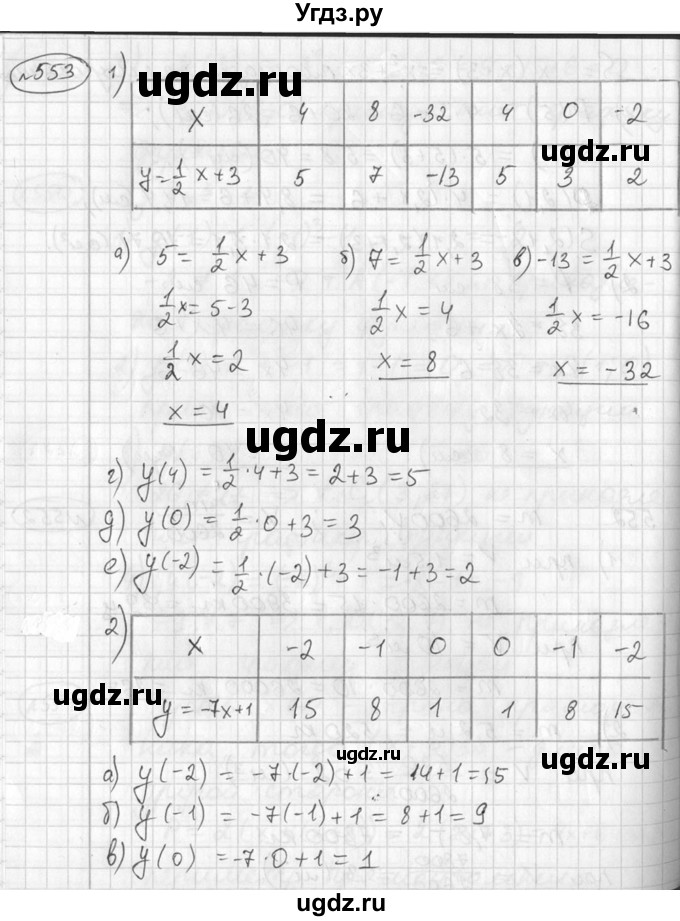 Угдз.ру
№553 1)
x 4 8 -32 4 0 -2
y=1/2 x+3 5 7 -13 5 3 2
а) 5 = 1/2 x + 3 б) 7 = 1/2 x + 3 в) -13 = 1/2 x + 3
1/2 x = 5 - 3 1/2 x = 4 1/2 x = -16
1/2 x = 2 x = 8 x = -32
x = 4
г) y(4) = 1/2 · 4 + 3 = 2 + 3 = 5
д) y(0) = 1/2 · 0 + 3 = 3
е) y(-2) = 1/2 · (-2) + 3 = -1 + 3 = 2
2)
x -2 -1 0 0 -1 -2
y = -7x+1 15 8 1 1 8 15
а) y(-2) = -7·(-2)+1 = 14+1=15
б) y(-1) = -7(-1)+1 = 8+1=9
в) y(0) = -7·0+1=1
ugdz.ru
ugdz.ru
ugdz.ru
ugdz.ru
ugdz.ru
ugdz.ru
ugdz.ru